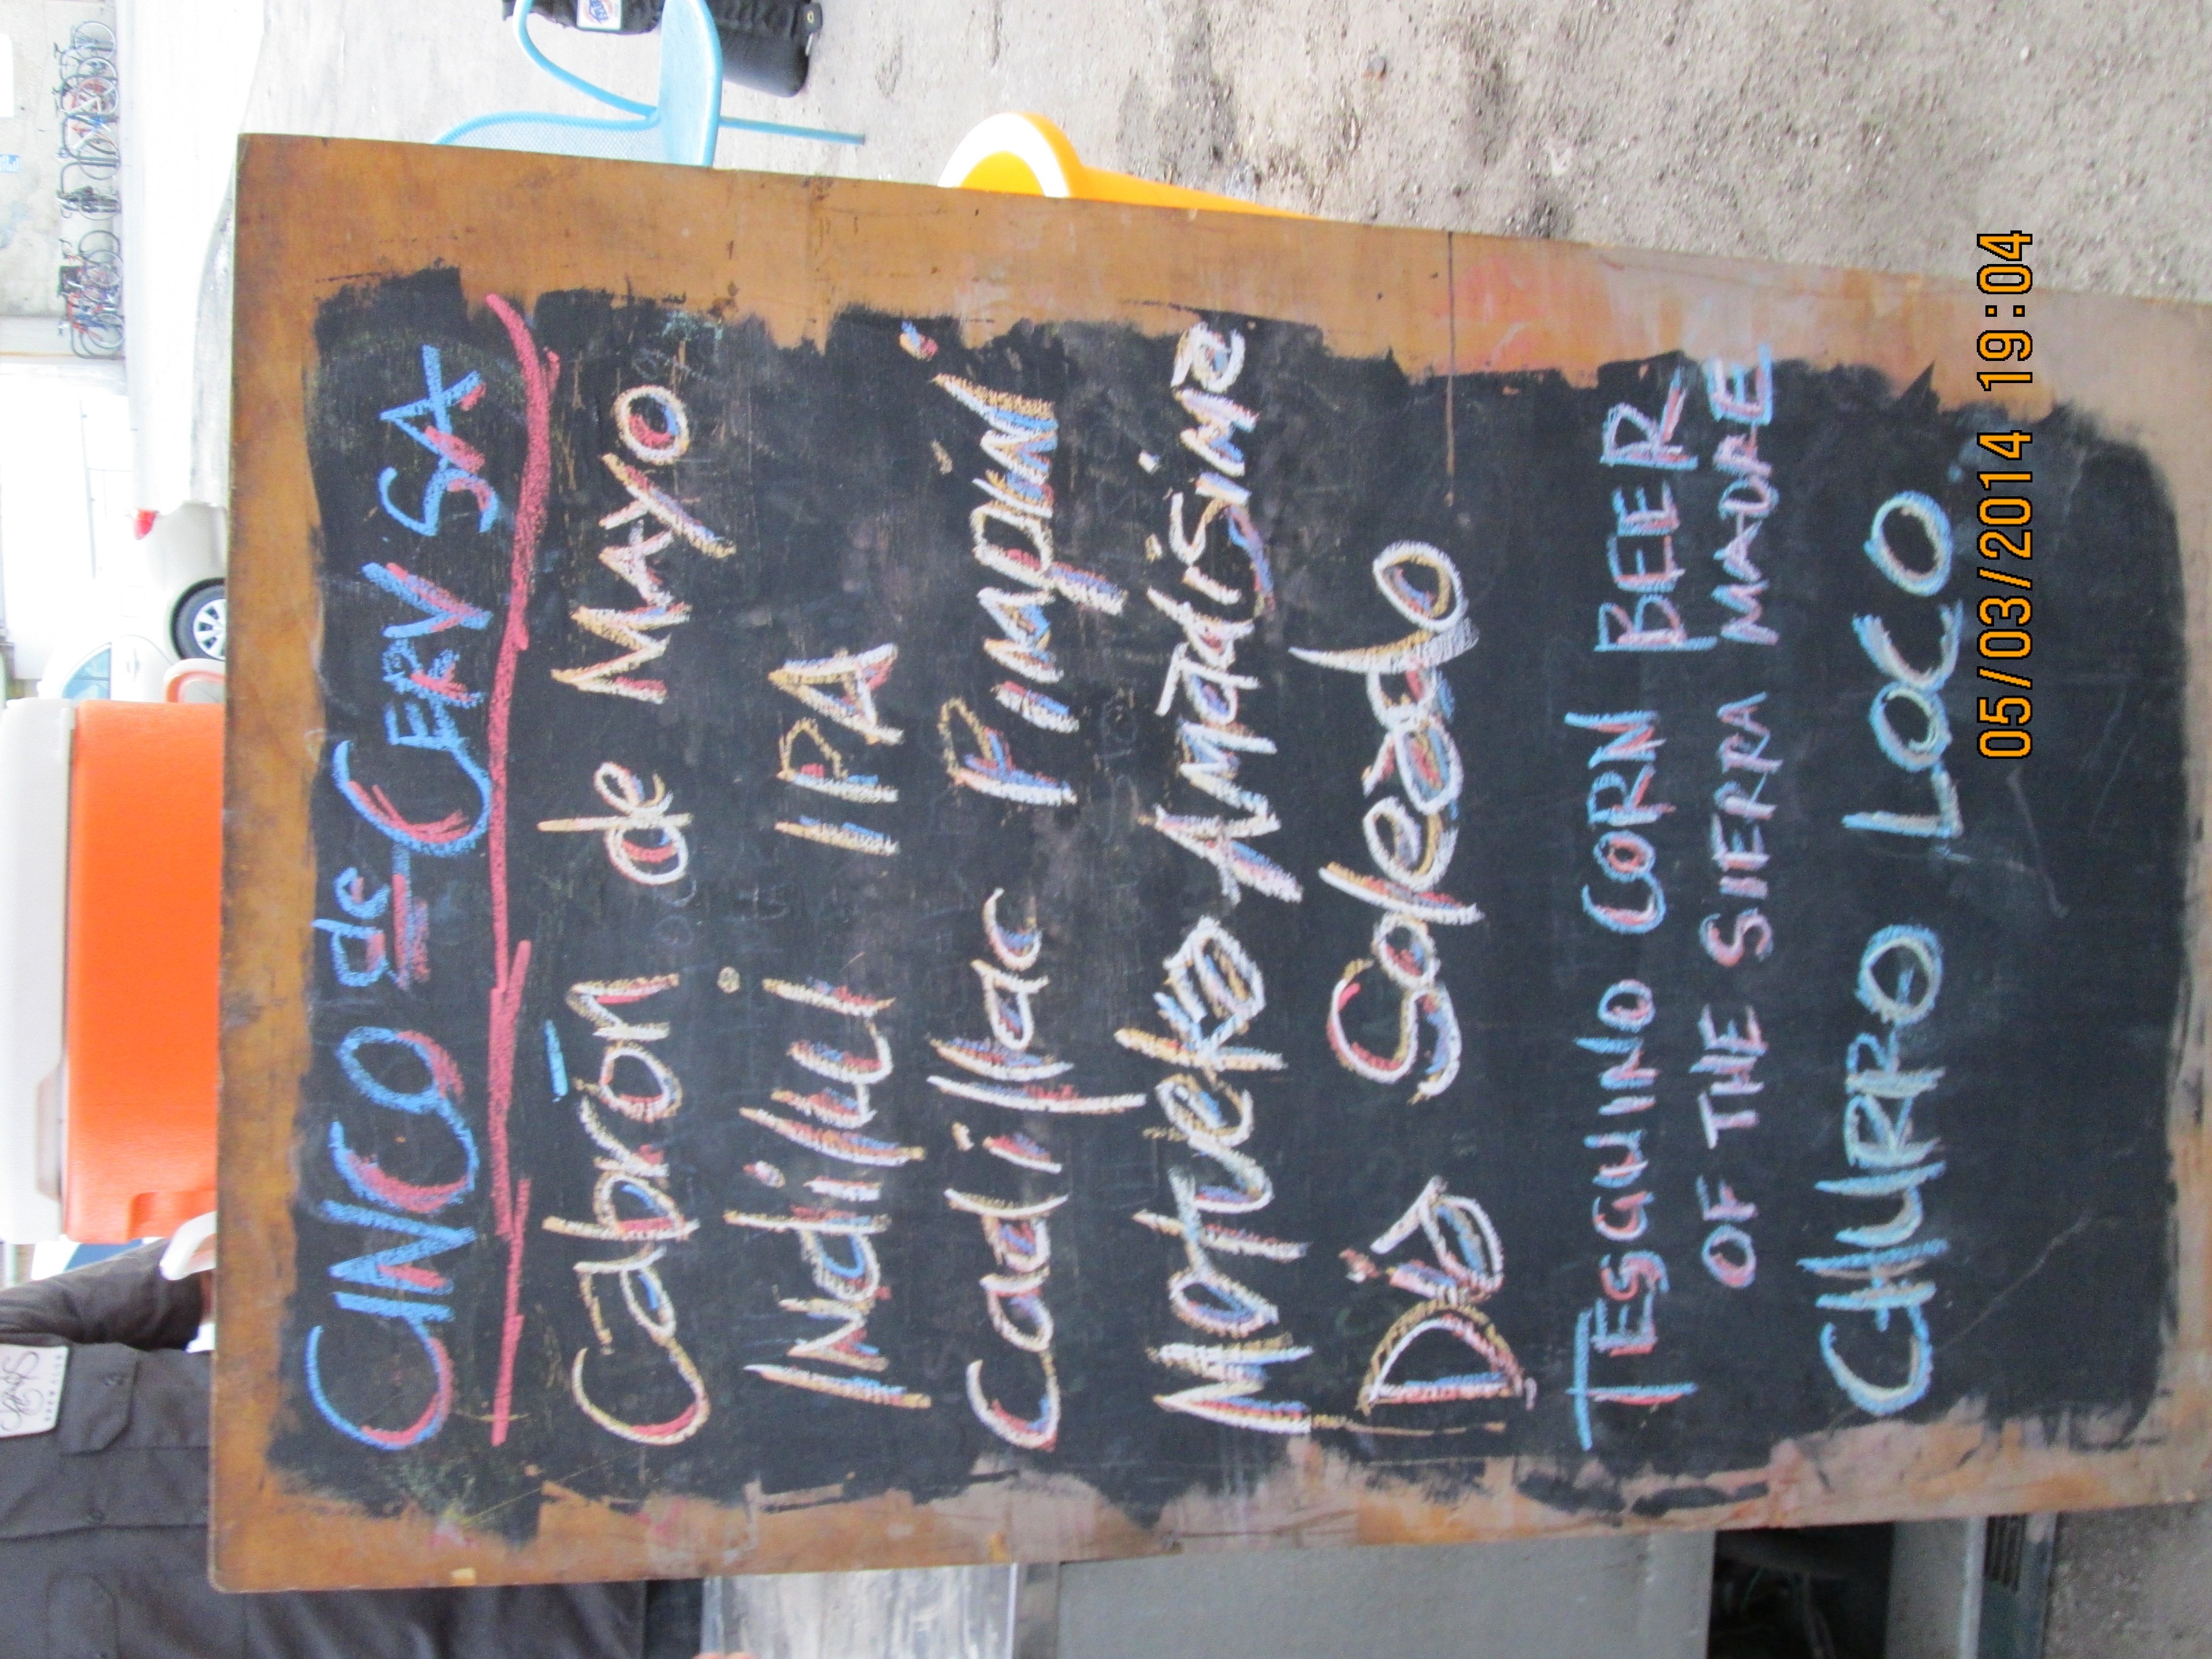 CINCO de CERV SA
Cabrón de Mayo
Indilill IPA
Cadillac Pimpin'
Morueko Amadisime
Día Soleado
TESGUINO CORN BEER
OF THE SIERRA MADRE
CHURRO LOCO
05/03/2014 19:04